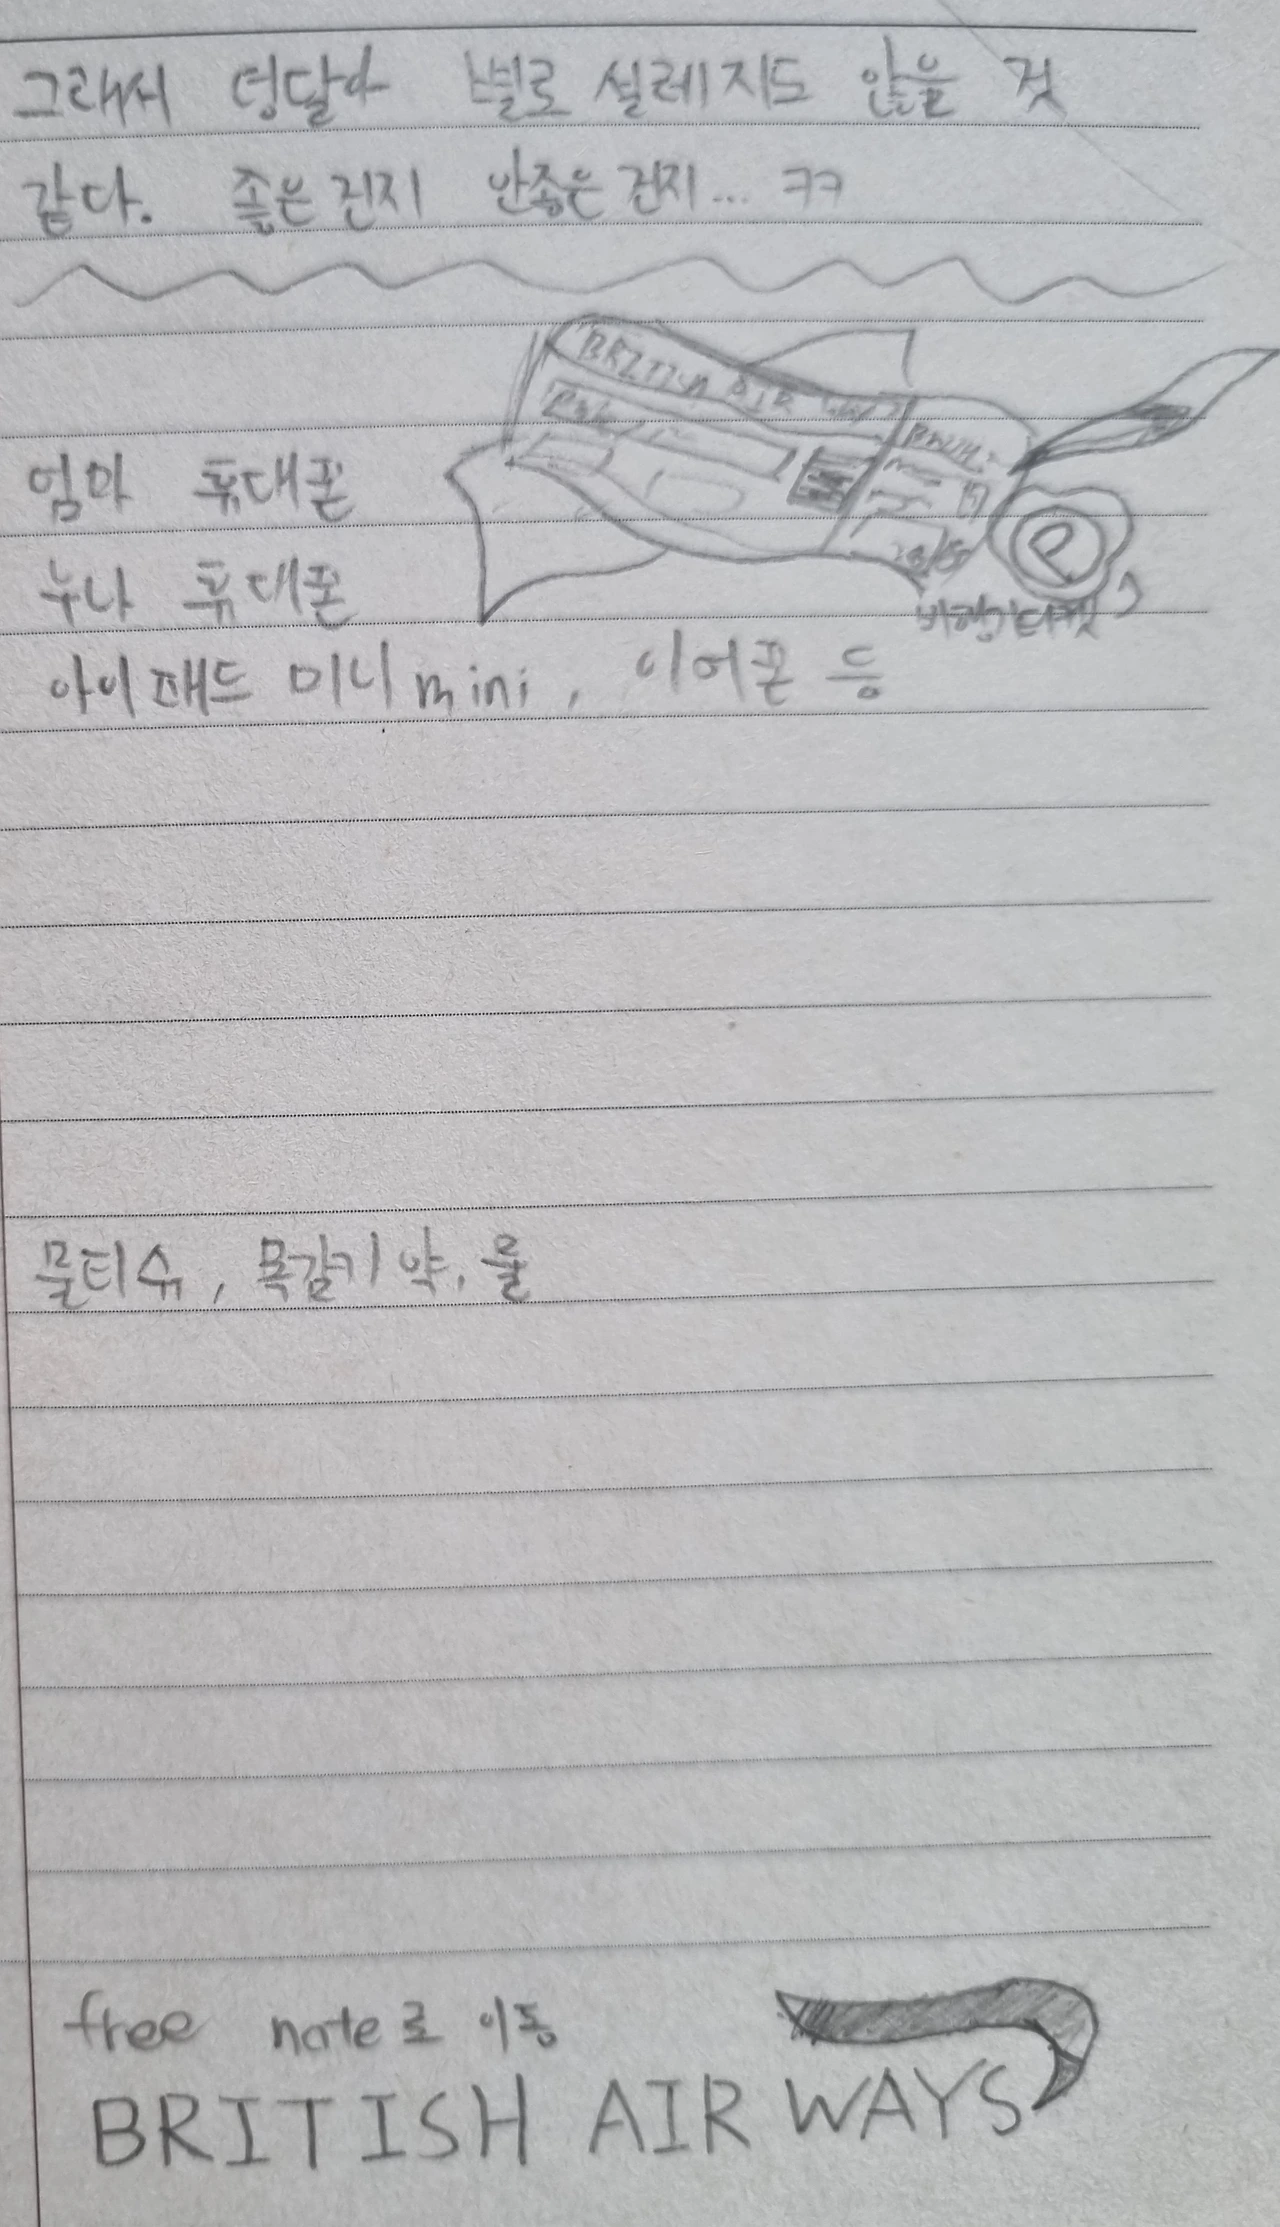 그래서 덩달아 별로 설레지도 않을 것
같다. 좋은건지 안좋은건지... ㅋㅋ
BRITISH AIR
엄마 휴대폰
누나 휴대폰
비행기티켓
아이패드 미니 mini, 이어폰 등
물티슈, 목감기 약, 물
free note로 이동
BRITISH AIRWAYS